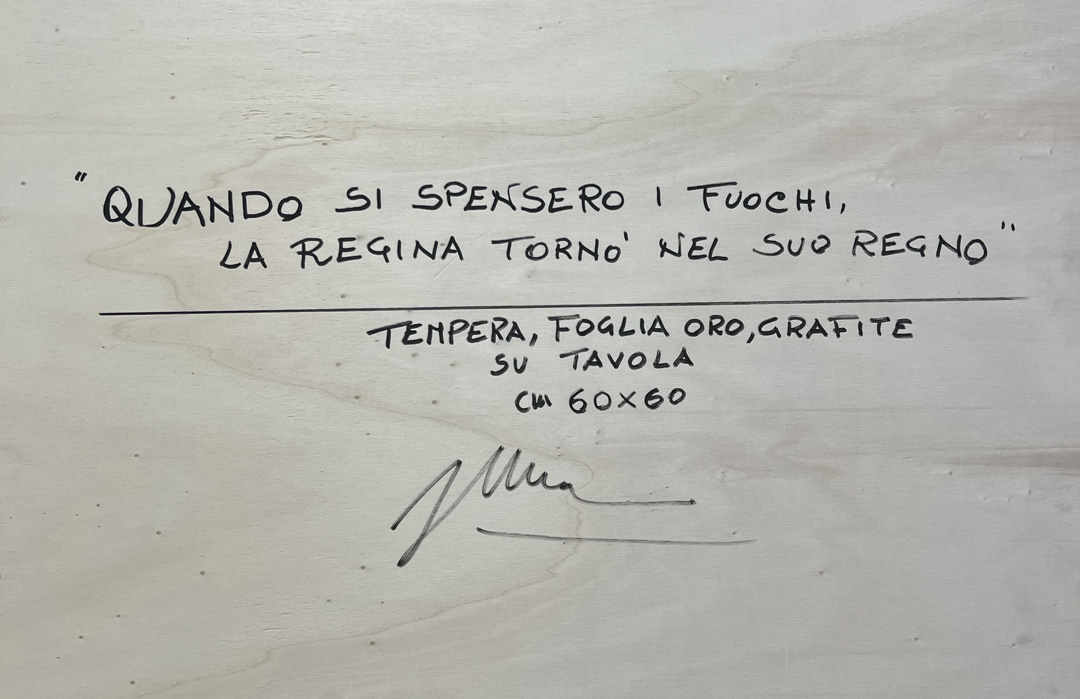 "QUANDO SI SPENSERO I FUOCHI,
LA REGINA TORNO' NEL SUO REGNO"
TEMPERA, FOGLIA ORO, GRAFITE
SU TAVOLA
cm 60x60